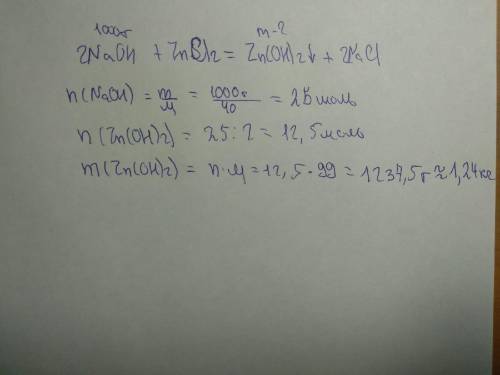 1000г m-?
2NaOH + ZnCl2 = Zn(OH)2↓ + 2NaCl
n(NaOH) = m/M = 1000г/40 = 25 моль
n(Zn(OH)2) = 25:2 = 12,5 моль
m(Zn(OH)2) = n·M = 12,5·99 = 1237,5г ≈ 1,24 кг